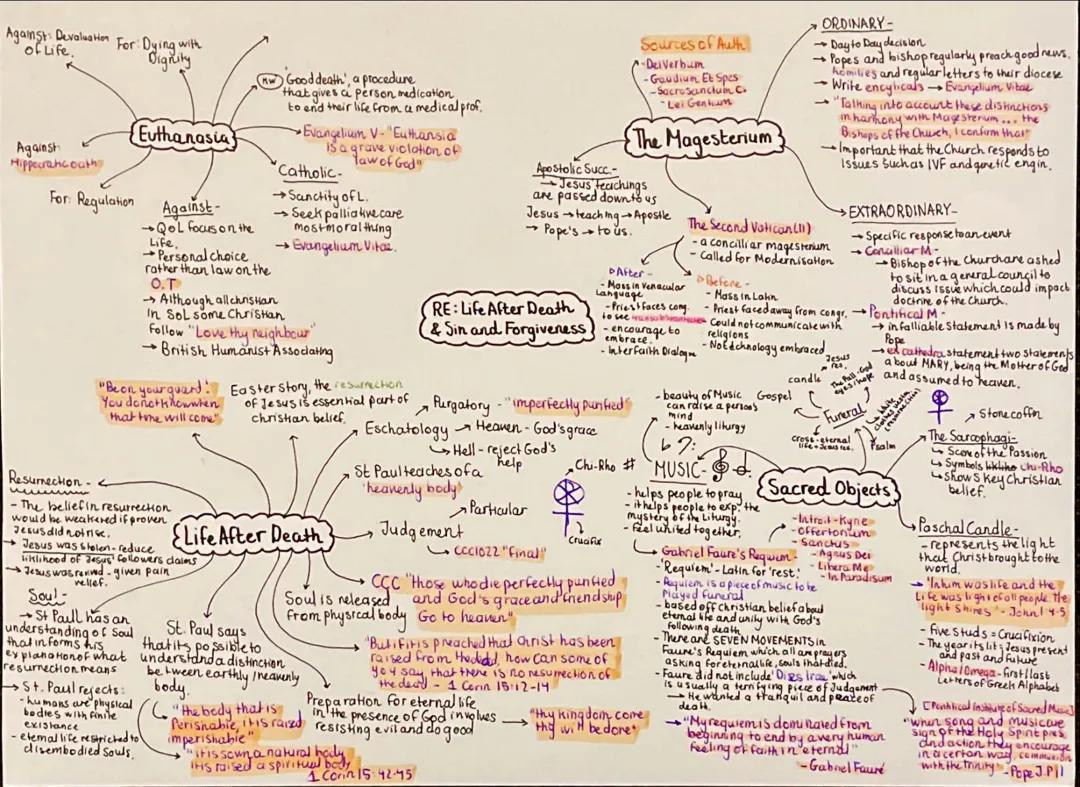 Against: Devaluation
of Life.
For: Dying with
Dignity
(NW) 'Good death', a procedure
that gives a person medication
to end their life from a medical prof.
Euthanasia
Evangelium V - "Euthansia
is a grave violation of
law of God"
Against:
Hippocratic oath
For: Regulation
Catholic -
→ Sanctity of L.
→ Seek palliative care
most moral thing
→ Evangelium Vitae.
Against -
→ QoL focus on the
Life.
→ Personal choice
rather than law on the
O.T
→ Although all christian
in SoL some Christian
follow "Love thy neighbour"
→ British Humanist Associating
Sources of Auth
- Dei Verbum
- Gaudium Et Spes
- Sacrosanctum C.
- Lei Gentium
The Magesterium
Apostolic Succ. -
→ Jesus teachings
are passed down to us
Jesus → teaching → Apostle
→ Pope's → to us.
The Second Vatican (II)
- a concilliar magesterium
- Called for Modernisation
▷ After -
- Mass in Venacular
Language
- Priest faces cong.
to see
- encourage to
embrace.
- Interfaith Dialogue
▷ Before -
- Mass in Latin
- Priest faced away from congr.
- Could not communicate with
religions
- No technology embraced
ORDINARY -
→ Day to Day decision
→ Popes and bishop regularly preach good news.
homilies and regular letters to their diocese
→ Write encylicals → Evangelium Vitae
→ "Talking into account these distinctions
in harmony with Magesterium ... the
Bishops of the Church, I confirm that"
→ Important that the Church responds to
Issues such as IVF and genetic engin.
EXTRAORDINARY -
→ Specific response to an event
→ Concilliar M -
→ Bishop of the Church are asked
to sit in a general council to
discuss issue which could impact
doctrine of the Church.
→ Pontifical M -
→ infalliable statement is made by
Pope
→ ex cathedra statement two statements
about MARY, being the Mother of God
and assumed to heaven.
RE: Life After Death
& Sin and Forgiveness
"Be on your guard!
You do not know when
that time will come"
Easter story, the resurrection
of Jesus is essential part of
christian belief.
Eschatology
Purgatory - "imperfectly purified"
→ Heaven - God's grace
→ Hell - reject God's
help
St Paul teaches of a
'heavenly body'
Judgement
→ Particular
→ CCC1022 "final"
Chi-Rho #
crucifix
Resurrection -
- The belief in resurrection
would be weakened if proven
Jesus did not rise.
→ Jesus was stolen - reduce
liklihood of Jesus' followers claims
→ Jesus was revived - given pain
relief.
Life After Death
CCC "Those who die perfectly purified
and God's grace and friendship
Go to heaven"
Soul is released
from physical body
"But if it is preached that Christ has been
raised from the dead, how can some of
you say that there is no resurrection of
the dead - 1 Corin 15:12-14
Soul -
→ St Paul has an
understanding of Soul
that informs his
explanation of what
resurrection means
→ St. Paul rejects:
- humans are physical
bodies with finite
existance
- eternal life restricted to
disembodied souls.
St. Paul says
that it is possible to
understand a distinction
between earthly/heavenly
body.
"the body that is
Perishable, it is raised
imperishable"
"it is sown a natural body
it is raised a spiritual body
1 Corin 15:42-45
Preparation for eternal life
in the presence of God involves
resisting evil and do good
→ "thy kingdom come
thy will be done"
- beauty of Music
can raise a person's
mind
- heavenly liturgy
MUSIC -
- helps people to pray
- it helps people to exp. the
mystery of the Liturgy.
- feel united together.
Gabriel Faure's Requim -
- 'Requiem' - Latin for 'rest.'
- Requiem is a piece of music to be
played funeral
- based off christian belief about
eternal life and unity with God's
following death
- There are SEVEN MOVEMENTS in
Faure's Requiem which all are prayers
asking for eternal life, souls that died.
- Faure did not include 'Dies Irae' which
is usually a terrifying piece of Judgement
→ He wanted a tranquil and peace of
death.
→ "My requiem is dominated from
beginning to end by a very human
feeling of faith in eternal"
- Gabriel Fauré
- Introit-Kyrie
- Offertorium
- Sanctus
- Agnus Dei
- Libera Me
- In Paradisum
Sacred Objects
Funeral
Gospel
candle
Jesus
res.
The Pall - God
cross - eternal
life + Jesus res.
Psalm
→ Stone coffin
The Sarcophagi -
→ Scene of the Passion
→ Symbols chi-Rho
→ Shows key Christian
belief.
Paschal Candle -
- represents the light
that Christ brought to the
world.
→ 'In him was life and the
Life was light of all people. the
light shines' - John 1:4-5
- five studs = Crucifixion
- The year its lit: Jesus present
and past and future
- Alpha/Omega - first/last
letters of Greek Alphabet
[Pontifical Institute of Sacred Music]
"when song and music are
sign of the Holy Spirit pres.
and action they encourage
in a certain way, communion
with the trinity" - Pope J.P II